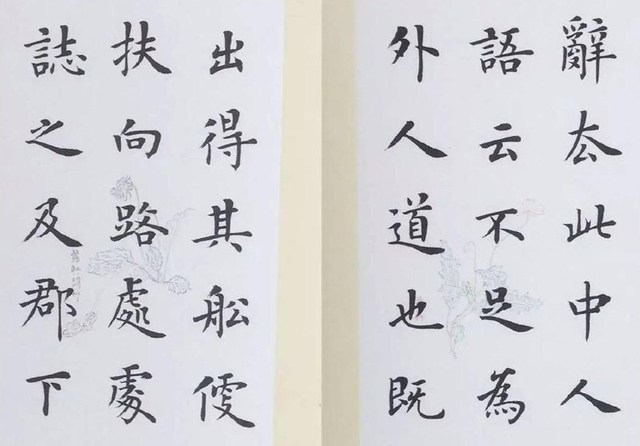 辭去此中人
語云不足為
外人道也既
出得其船便
扶向路處處
誌之及郡下